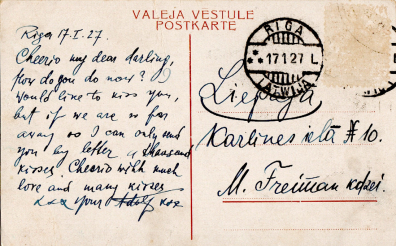 VALEJA VĒSTULE
POSTKARTE
Riga 17.I.27.
Cheerio my dear darling,
how do you do now? I
would like to kiss you,
but if we are so far
away so I can only send
you by letter a thousand
kisses. Cheerio with much
love and many kisses
xxx your Adolf xxx
RIGA
17 1 27 L
LATWIJA
Liepaja
Karlines ielā № 10.
M. Freiman kdzei.